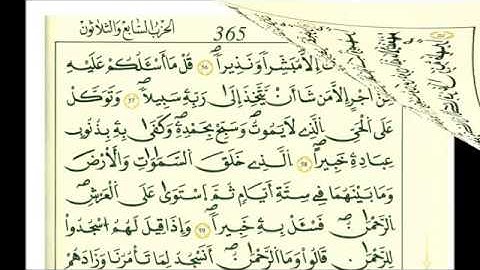 365 الحزب السابع والثلاثون
إِلَّا مُبَشِّرًا وَنَذِيرًا 56 قُلْ مَا أَسْـَٔلُكُمْ عَلَيْهِ
مِنَ اَجْرٍ اِلَّا مَن شَآءَ انْ يَّتَّخِذَ إِلَىٰ رَبِّهِۦ سَبِيلًا 57 وَتَوَكَّلْ
عَلَى الْحَيِّ الَّذِي لَا يَمُوتُ وَسَبِّحْ بِحَمْدِهِۦ وَكَفَىٰ بِهِۦ بِذُنُوبِ
عِبَادِهِۦ خَبِيرًا 58 الَّذِي خَلَقَ السَّمَٰوَٰتِ وَالْأَرْضَ
وَمَا بَيْنَهُمَا فِي سِتَّةِ أَيَّامٍ ثُمَّ اسْتَوَىٰ عَلَى الْعَرْشِ
الرَّحْمَٰنُ فَسْـَٔلْ بِهِۦ خَبِيرًا 59 وَإِذَا قِيلَ لَهُمُ اسْجُدُوا
لِلرَّحْمَٰنِ قَالُوا وَمَا الرَّحْمَٰنُ أَنَسْجُدُ لِمَا تَأْمُرُنَا وَزَادَهُمْ